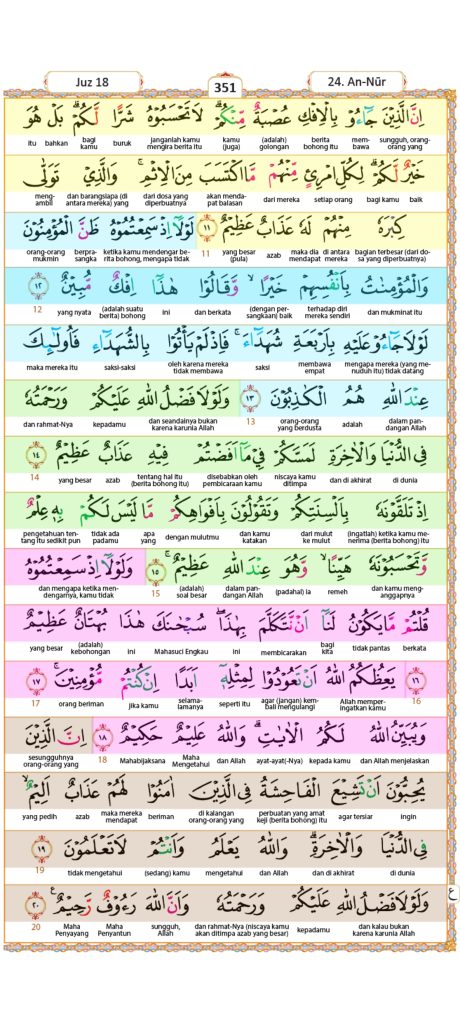 Juz 18
351
24. An-Nūr
اِنَّ الَّذِيْنَ جَاۤءُوْ بِالْاِفْكِ عُصْبَةٌ مِّنْكُمْۗ لَا تَحْسَبُوْهُ شَرًّا لَّكُمْۗ بَلْ هُوَ
sungguh, orang-orang yang mem-bawa berita bohong itu (adalah) golongan kamu (juga) janganlah kamu mengira berita itu buruk bagi kamu bahkan itu
خَيْرٌ لَّكُمْۗ لِكُلِّ امْرِئٍ مِّنْهُمْ مَّا اكْتَسَبَ مِنَ الْاِثْمِۚ وَالَّذِيْ تَوَلّٰى
baik bagi kamu setiap orang dari mereka akan menda-pat balasan dari dosa yang diperbuatnya dan barangsiapa (di antara mereka) yang meng-ambil
كِبْرَهٗ مِنْهُمْ لَهٗ عَذَابٌ عَظِيْمٌ ١١ لَوْلَآ اِذْ سَمِعْتُمُوْهُ ظَنَّ الْمُؤْمِنُوْنَ
bagian terbesar (dari do-sa yang diperbuatnya) di antara mereka maka dia mendapat azab yang besar (pula) 11 ketika kamu mendengar be-rita bohong, mengapa tidak berpra-sangka orang-orang mukmin
وَالْمُؤْمِنٰتُ بِاَنْفُسِهِمْ خَيْرًاۙ وَّقَالُوْا هٰذَآ اِفْكٌ مُّبِيْنٌ ١٢
dan mukminat itu terhadap diri mereka sendiri (dengan per-sangkaan) baik dan berkata ini (adalah suatu berita) bohong yang nyata 12
لَوْلَا جَاۤءُوْ عَلَيْهِ بِاَرْبَعَةِ شُهَدَاۤءَۚ فَاِذْ لَمْ يَأْتُوْا بِالشُّهَدَاۤءِ فَاُولٰۤىِٕكَ
mengapa mereka (yang me-nuduh itu) tidak datang membawa empat saksi oleh karena mereka tidak membawa saksi-saksi maka mereka itu
عِنْدَ اللّٰهِ هُمُ الْكٰذِبُوْنَ ١٣ وَلَوْلَا فَضْلُ اللّٰهِ عَلَيْكُمْ وَرَحْمَتُهٗ
dalam pan-dangan Allah adalah orang-orang yang berdusta 13 dan seandainya bukan karena karunia Allah kepadamu dan rahmat-Nya
فِى الدُّنْيَا وَالْاٰخِرَةِ لَمَسَّكُمْ فِيْ مَآ اَفَضْتُمْ فِيْهِ عَذَابٌ عَظِيْمٌ ١٤
di dunia dan di akhirat niscaya kamu ditimpa disebabkan oleh pembicaraan kamu tentang hal itu (berita bohong itu) azab yang besar 14
اِذْ تَلَقَّوْنَهٗ بِاَلْسِنَتِكُمْ وَتَقُوْلُوْنَ بِاَفْوَاهِكُمْ مَّا لَيْسَ لَكُمْ بِهٖ عِلْمٌ
(ingatlah) ketika kamu me-nerima (berita bohong) itu dari mulut ke mulut dan kamu katakan dengan mulutmu apa yang tidak ada padamu pengetahuan ten-tang itu sedikit pun
وَّتَحْسَبُوْنَهٗ هَيِّنًاۙ وَّهُوَ عِنْدَ اللّٰهِ عَظِيْمٌ ١٥ وَلَوْلَآ اِذْ سَمِعْتُمُوْهُ
dan kamu meng-anggapnya remeh (padahal) ia dalam pan-dangan Allah (adalah) soal besar 15 dan mengapa ketika men-dengarnya, kamu tidak
قُلْتُمْ مَّا يَكُوْنُ لَنَآ اَنْ نَّتَكَلَّمَ بِهٰذَاۖ سُبْحٰنَكَ هٰذَا بُهْتَانٌ عَظِيْمٌ
berkata tidak pantas bagi kita membicarakan ini Mahasuci Engkau ini (adalah) kebohongan yang besar
١٦ يَعِظُكُمُ اللّٰهُ اَنْ تَعُوْدُوْا لِمِثْلِهٖٓ اَبَدًا اِنْ كُنْتُمْ مُّؤْمِنِيْنَۚ ١٧
16 Allah memper-ingatkan kamu agar (jangan) kem-bali mengulangi seperti itu selama-lamanya jika kamu orang beriman 17
وَيُبَيِّنُ اللّٰهُ لَكُمُ الْاٰيٰتِۗ وَاللّٰهُ عَلِيْمٌ حَكِيْمٌ ١٨ اِنَّ الَّذِيْنَ
dan Allah menjelaskan kepada kamu ayat-ayat(-Nya) dan Allah Maha Mengetahui Mahabijaksana 18 sesungguhnya orang-orang yang
يُحِبُّوْنَ اَنْ تَشِيْعَ الْفَاحِشَةُ فِى الَّذِيْنَ اٰمَنُوْا لَهُمْ عَذَابٌ اَلِيْمٌۙ
ingin agar tersiar perbuatan yang amat keji (berita bohong) itu di kalangan orang-orang yang beriman maka mereka mendapat azab yang pedih
فِى الدُّنْيَا وَالْاٰخِرَةِۗ وَاللّٰهُ يَعْلَمُ وَاَنْتُمْ لَا تَعْلَمُوْنَ ١٩
di dunia dan di akhirat dan Allah mengetahui (sedang) kamu tidak mengetahui 19
وَلَوْلَا فَضْلُ اللّٰهِ عَلَيْكُمْ وَرَحْمَتُهٗ وَاَنَّ اللّٰهَ رَءُوْفٌ رَّحِيْمٌ ٢٠ ع
dan kalau bukan karena karunia Allah kepadamu dan rahmat-Nya (niscaya kamu akan ditimpa azab yang besar) sungguh, Allah Maha Penyantun Maha Penyayang 20